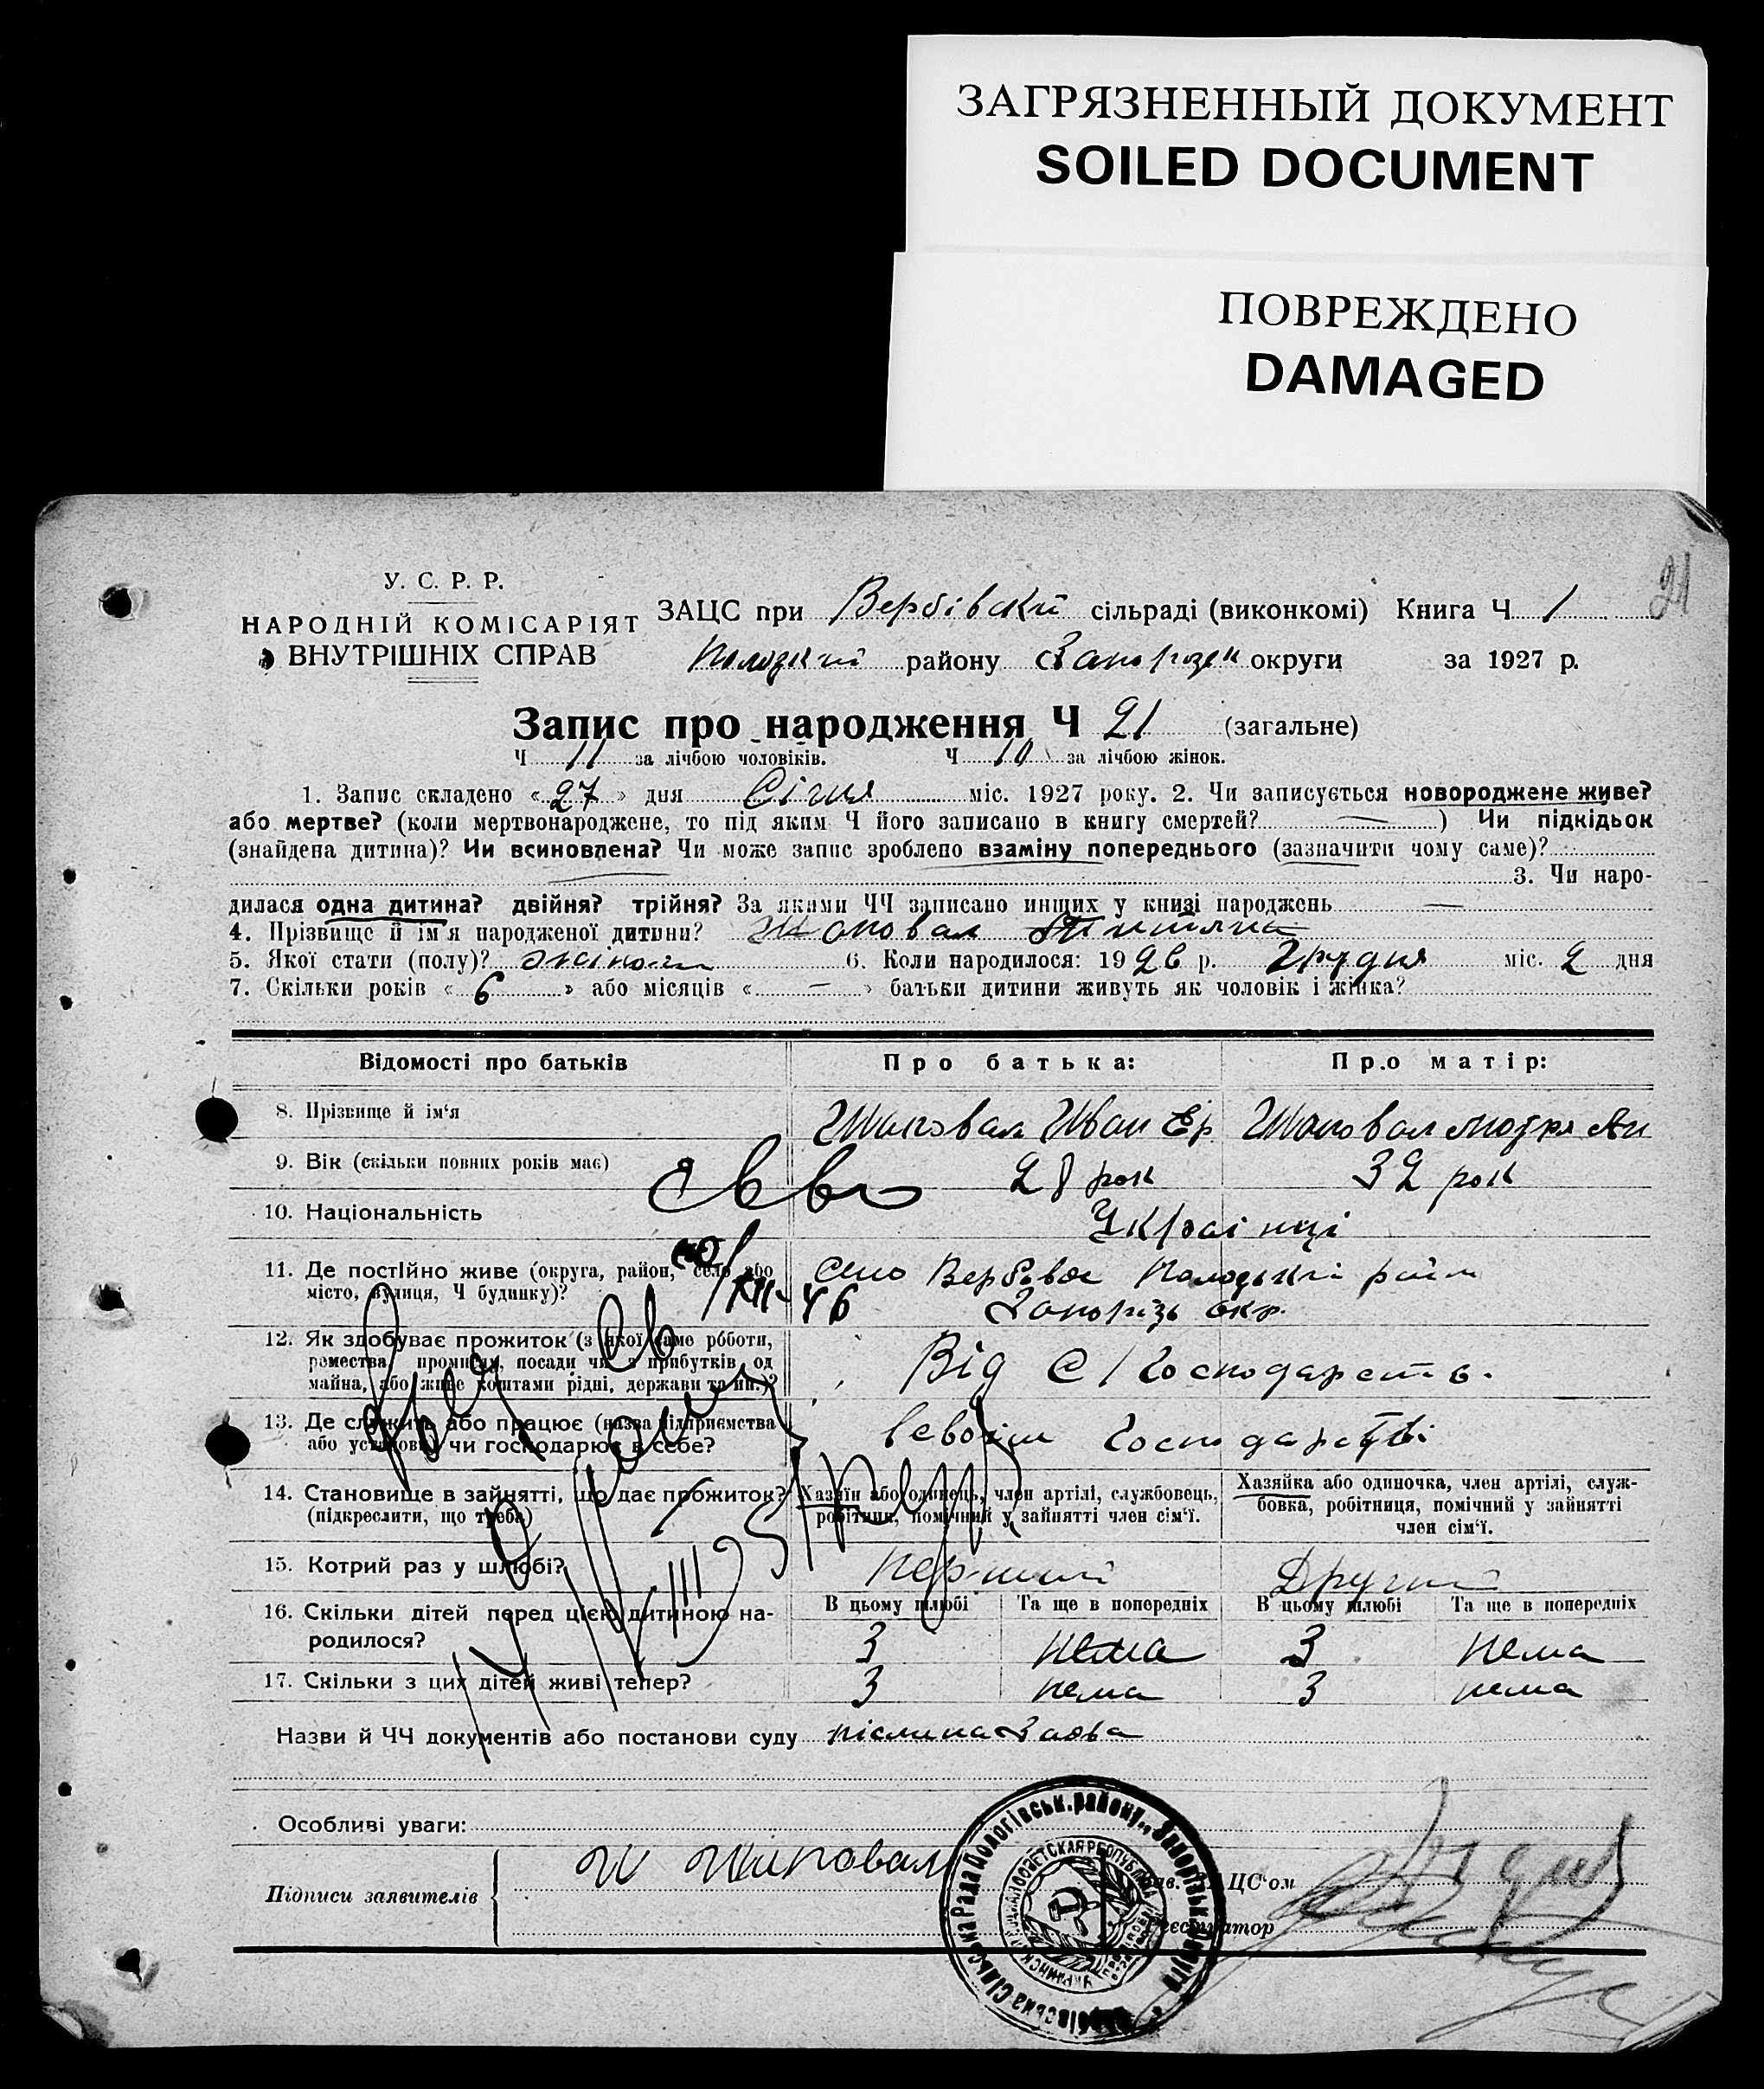 ЗАГРЯЗНЕННЫЙ ДОКУМЕНТ
SOILED DOCUMENT
ПОВРЕЖДЕНО
DAMAGED
21
У. С. Р. Р.
НАРОДНІЙ КОМІСАРІЯТ
ВНУТРІШНІХ СПРАВ
ЗАЦС при Вербівскій сільраді (виконкомі) Книга Ч. 1
району Запорізьк округи за 1927 р.
Запис про народження Ч 21 (загальне)
Ч 11 за лічбою чоловіків. Ч 10 за лічбою жінок.
1. Запис складено « 27 » дня Січня міс. 1927 року. 2. Чи записується новороджене живе?
або мертве? (коли мертвонароджене, то під яким Ч його записано в книгу смертей? — ) Чи підкідьок
(знайдена дитина)? Чи всиновлена? Чи може запис зроблено взаміну попереднього (зазначити чому саме)?
3. Чи наро-
дилася одна дитина? двійня? трійня? За якими ЧЧ записано инщих у книзі народжень —
4. Прізвище й ім'я народженої дитини? Шаповал
5. Якої стати (полу)? жіноч 6. Коли народилося: 1926 р. Грудня міс. 2 дня
7. Скільки років « 6 » або місяців « — » батьки дитини живуть як чоловік і жінка?
Відомості про батьків
Про батька:
Про матір:
8. Прізвище й ім'я
Шаповал Иван Єр
Шаповал Мотря Ан
9. Вік (скільки повних років має)
28 рок
32 рок
10. Національність
Українці
11. Де постійно живе (округа, район, село або
місто, вулиця, Ч будинку)?
село Вербове район
Запоріз окр.
12. Як здобуває прожиток (з якої саме роботи,
ремества, промислу, посади чи з прибутків од
майна, або живе коштами рідні, держави та ин.)?
Від С/Господарств.
13. Де служить або працює (назва підприємства
або установи) чи господарює в себе?
Господарстві
14. Становище в зайнятті, що дає прожиток?
(підкреслити, що треба)
Хазяїн або одинець, член артілі, службовець,
робітник, помічний у зайнятті член сім'ї.
Хазяйка або одиночка, член артілі, служ-
бовка, робітниця, помічний у зайнятті
член сім'ї.
15. Котрий раз у шлюбі?
Перший
Другий
16. Скільки дітей перед цією дитиною на-
родилося?
В цьому шлюбі Та ще в попередніх В цьому шлюбі Та ще в попередніх
3 нема 3 нема
17. Скільки з цих дітей живі тепер?
3 нема 3 нема
Назви й ЧЧ документів або постанови суду
Особливі уваги:
Підписи заявителів
И Шаповал
Зав. ЗАЦС'ом
Реєстратор
Вербівська Сільська Рада Пологівськ. району, Запорізьк. округи